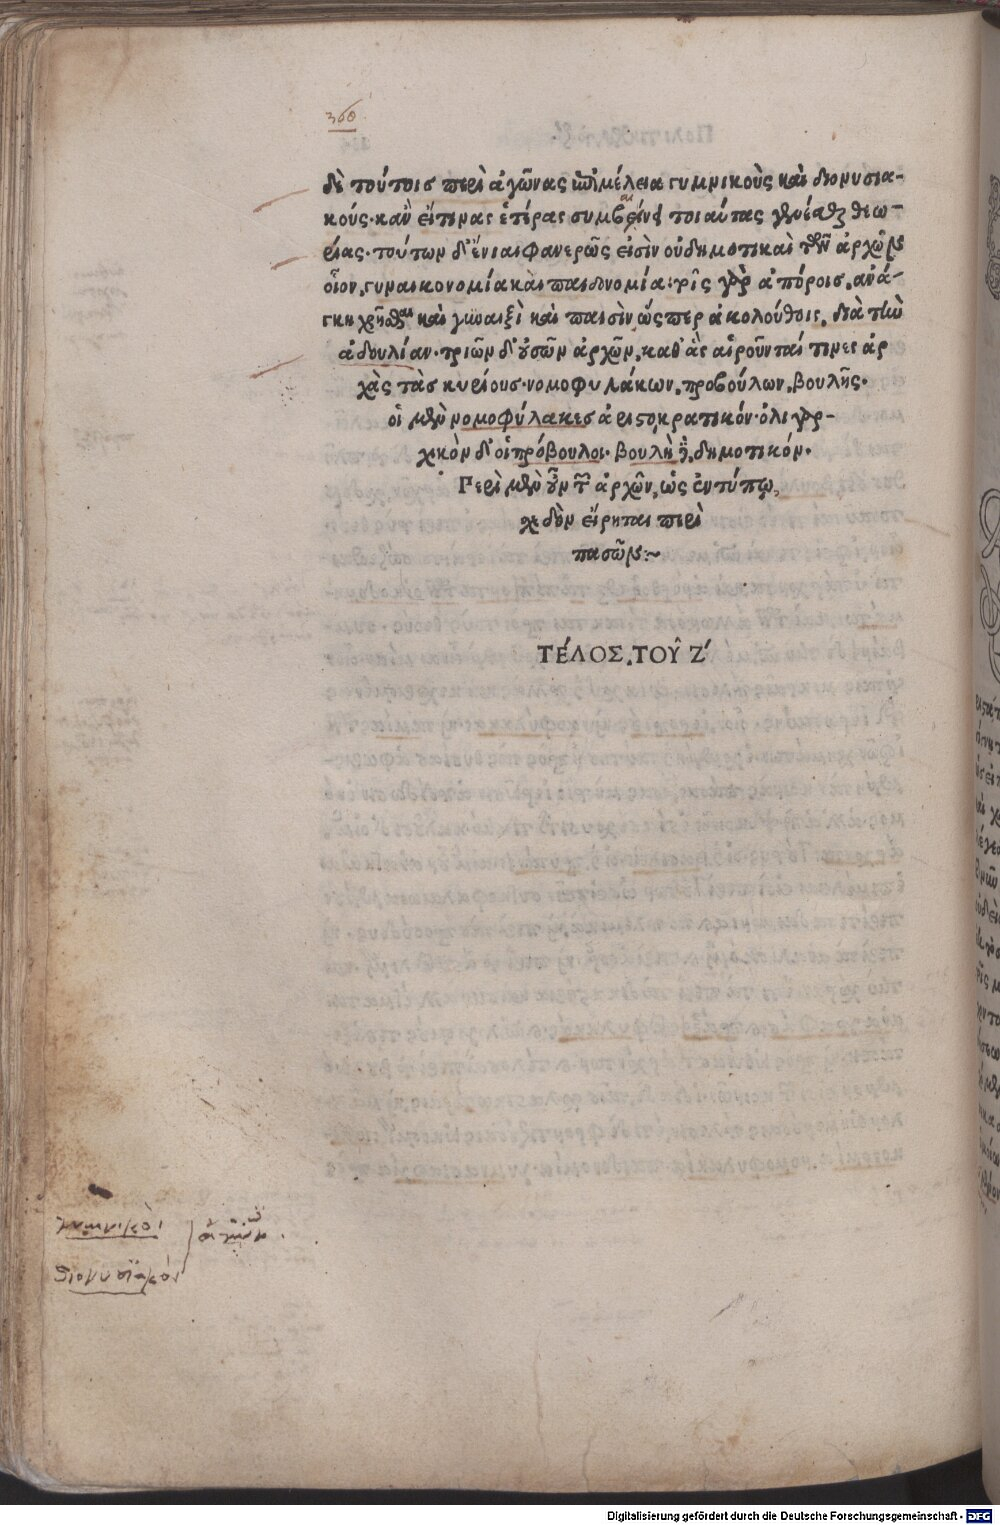 360
δὲ τούτοις περὶ ἀγῶνας ἐπιμέλεια γυμνικοὺς καὶ διονυσια-
κούς· κἂν εἴ τινας ἑτέρας συμβαίνῃ τοιαύτας γίνεσθαι θεω-
ρίας. τούτων δ' ἔνιαι φανερῶς εἰσὶν οὐ δημοτικαὶ τῶν ἀρχῶν
οἷον, γυναικονομία καὶ παιδονομία· τοῖς γὰρ ἀπόροις, ἀνά-
γκη χρῆσθαι καὶ γυναιξὶ καὶ παισὶν ὥσπερ ἀκολούθοις, διὰ τὴν
ἀδουλίαν. τριῶν δ' οὐσῶν ἀρχῶν, καθ' ἃς αἱροῦνταί τινες ἀρ
χὰς τὰς κυρίους· νομοφυλάκων, προβούλων, βουλῆς.
οἱ μὲν νομοφύλακες ἀριστοκρατικόν· ὀλιγαρ-
χικὸν δ' οἱ πρόβουλοι. βουλὴ δὲ, δημοτικόν.
Περὶ μὲν οὖν τῶν ἀρχῶν, ὡς ἐν τύπῳ,
σχεδὸν εἴρηται περὶ
πασῶν:~
ΤΈΛΟΣ ΤΟΥ͂ Ζ'
γυμνικοὶ
ἀγῶν.
διονυσιακοὶ
Digitalisierung gefördert durch die Deutsche Forschungsgemeinschaft - DFG